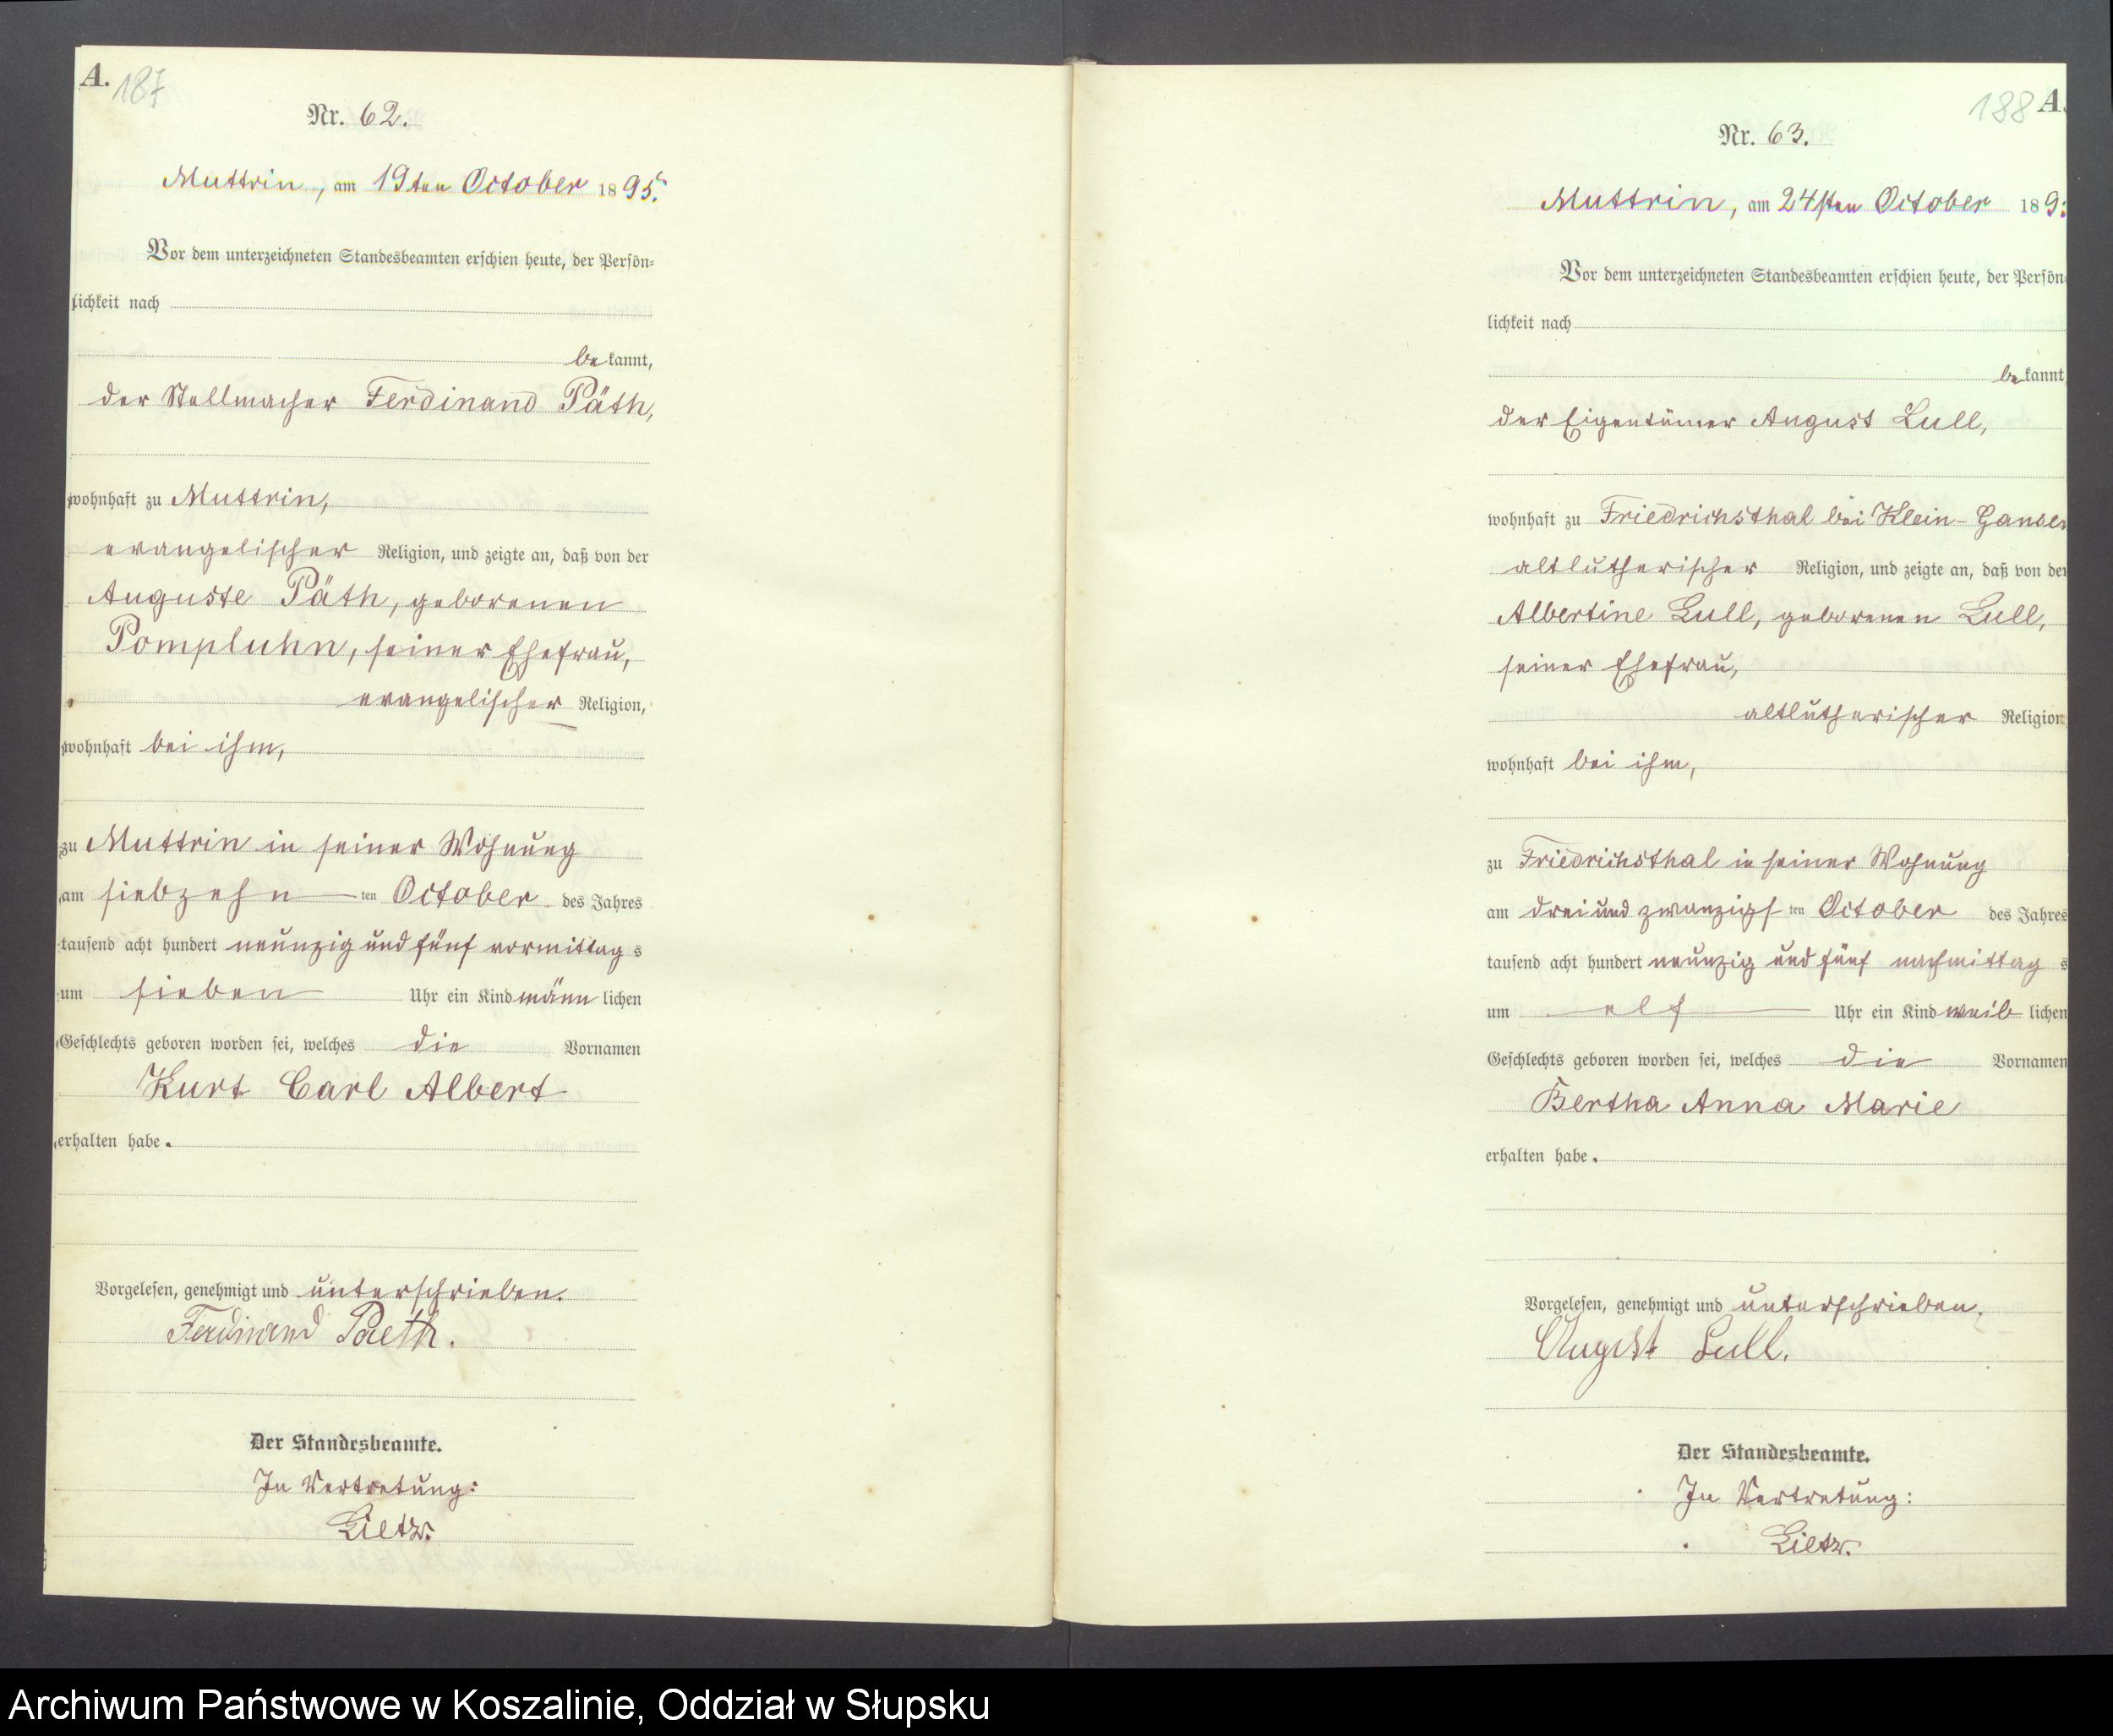 A. 187
Nr. 62.
Muttrin, am 19ten October 1895.
Vor dem unterzeichneten Standesbeamten erschien heute, der Persön-
lichkeit nach
bekannt,
der Stellmacher Ferdinand Päth,
wohnhaft zu Muttrin,
evangelischer Religion, und zeigte an, daß von der
Auguste Päth, geborenen
Pompluhn, seiner Ehefrau,
evangelischer Religion,
wohnhaft bei ihm,
zu Muttrin in seiner Wohnung
am siebzehn ten October des Jahres
tausend acht hundert neunzig und fünf vormittags
um sieben Uhr ein Kind männlichen
Geschlechts geboren worden sei, welches die Vornamen
Kurt Carl Albert
erhalten habe.
Vorgelesen, genehmigt und unterschrieben.
Ferdinand Paeth.
Der Standesbeamte.
In Vertretung:
Lietz.
188 A.
Nr. 63.
Muttrin, am 24sten October 189
Vor dem unterzeichneten Standesbeamten erschien heute, der Persön-
lichkeit nach
bekannt
der Eigentümer August Lull,
wohnhaft zu Friedrichsthal bei Klein-Gansen
altlutherischer Religion, und zeigte an, daß von der
Albertine Lull, geborenen Lull,
seiner Ehefrau,
altlutherischer Religion
wohnhaft bei ihm,
zu Friedrichsthal in seiner Wohnung
am drei und zwanzigsten October des Jahres
tausend acht hundert neunzig und fünf nachmittags
um elf Uhr ein Kind weiblichen
Geschlechts geboren worden sei, welches die Vornamen
Bertha Anna Marie
erhalten habe.
Vorgelesen, genehmigt und unterschrieben.
August Lull.
Der Standesbeamte.
In Vertretung:
Lietz.
Archiwum Państwowe w Koszalinie, Oddział w Słupsku